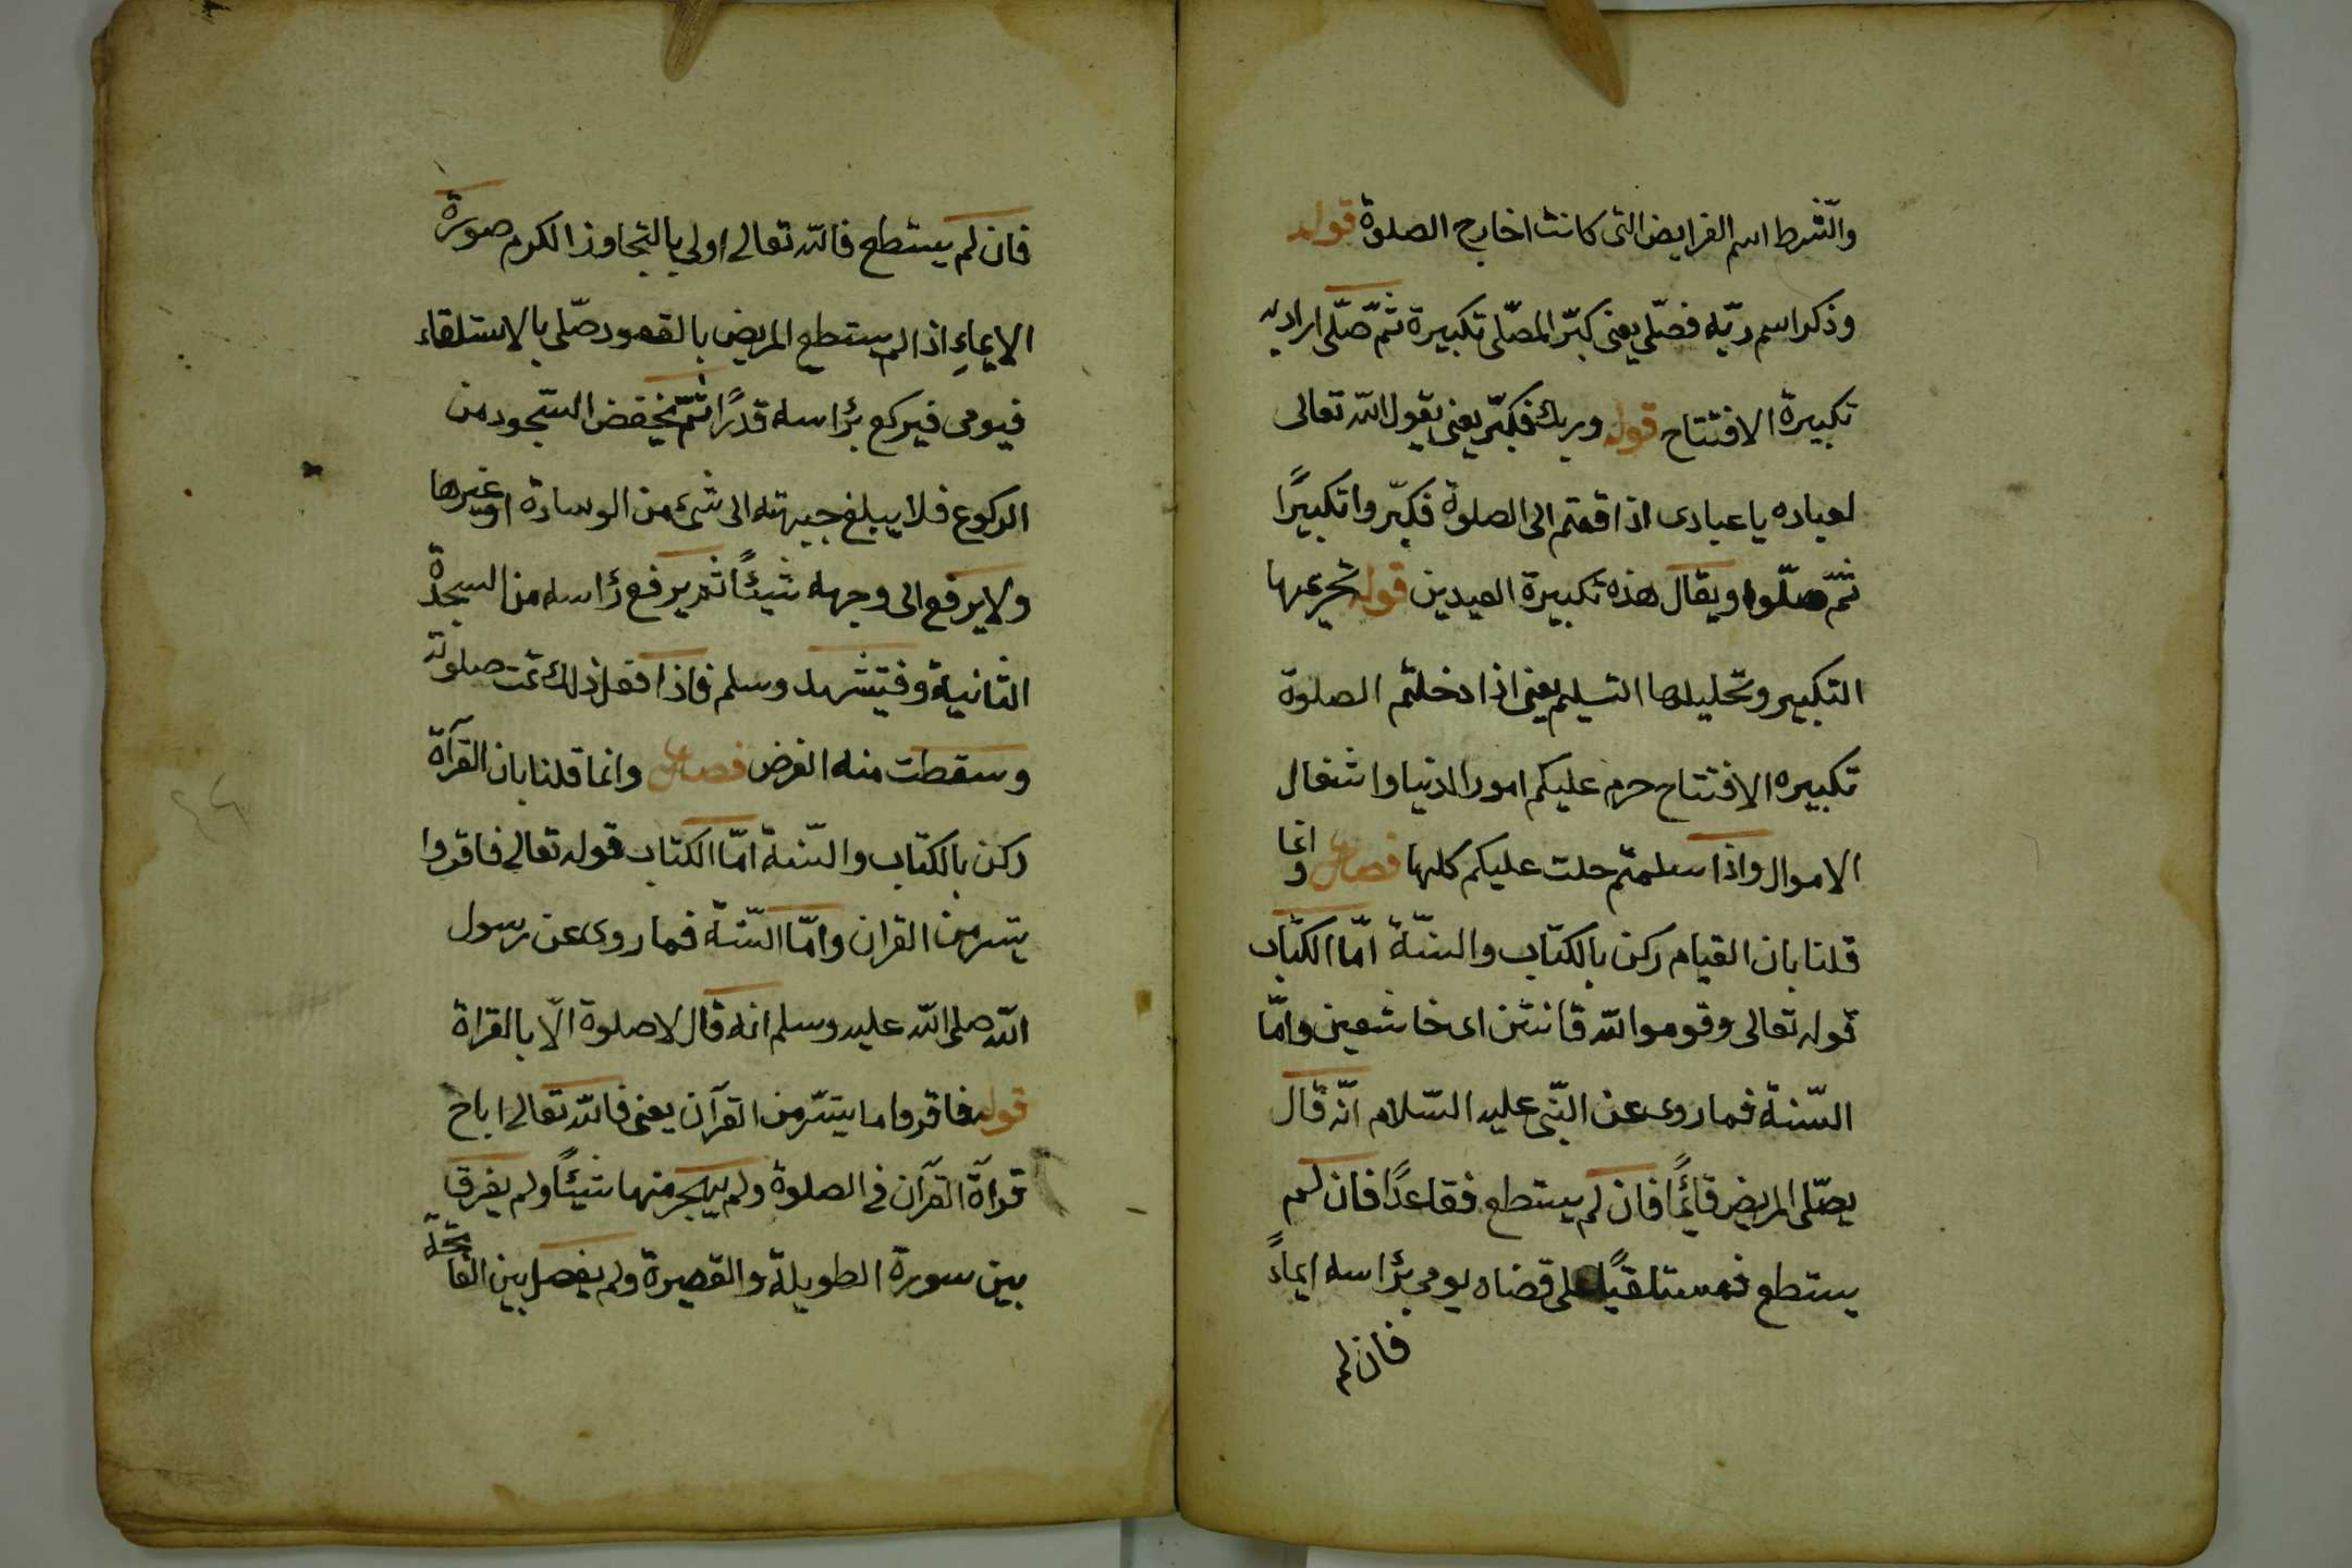 والشّرط اسم الفرايض التى كانت اخارج الصلوة قوله
وذكر اسم ربّه فصلّى يعنى كبّر المصلّى تكبيرة ثمّ صلّى اراد به
تكبيرة الافتتاح قوله وربك فكبّر يعنى يقول اللّه تعالى
لعباده يا عبادى اذا قمتم الى الصلوة فكبّروا تكبيرًا
ثمّ صلّوا ويقال هذه تكبيرة العيدين قوله تحريمها
التكبير وتحليلها التسليم يعنى اذا دخلتم الصلوة
تكبيره الافتتاح حرم عليكم امور الدنيا واشغال
الاموال واذا سلمتم حلت عليكم كلها فصل وانما
قلنا بان القيام ركن بالكتاب والسنّة امّا الكتاب
قوله تعالى وقوموا للّه قانتين اى خاشعين وامّا
السّنة فما روى عن النّبى عليه السّلام انّه قال
يصلّى المريض قائمًا فان لم يستطع فقاعدًا فان لم
يستطع فمستلقيًا على قفاه يومى برأسه ايماءً
فان لم
فان لم يستطع فاللّه تعالى اولى بالتجاوز الكرم صورة
الايماءِ اذا لم يستطع المريض بالقعود صلّى بالاستلقاء
فيومى فيركع برأسه قدرًا ثمّ يخفض السّجود من
الركوع فلا يبلغ جبهته الى شىء من الوسادة او غيرها
ولا يرفع الى وجهه شيئًا ثم يرفع رأسه من السجدة
الثانية وفتيشهد وسلم فاذا فعل ذلك تمت صلوته
وسقطت منه الفرض فصل وانما قلنا بان القرآة
ركن بالكتاب والسّنة امّا الكتاب قوله تعالى فاقروا
يتسر من القران وامّا السّنّة فما روى عن رسول
اللّه صلى اللّه عليه وسلم انه قال لا صلوة الّا بالقراة
قوله فاقروا ما يتسّر من القرآن يعنى فاللّه تعالى اباح
قرآة القرآن فى الصلوة ولم يهجر منها شيئًا ولم يفرق
بين سورة الطويلة والقصيرة ولم يفصل بين الفاتحة